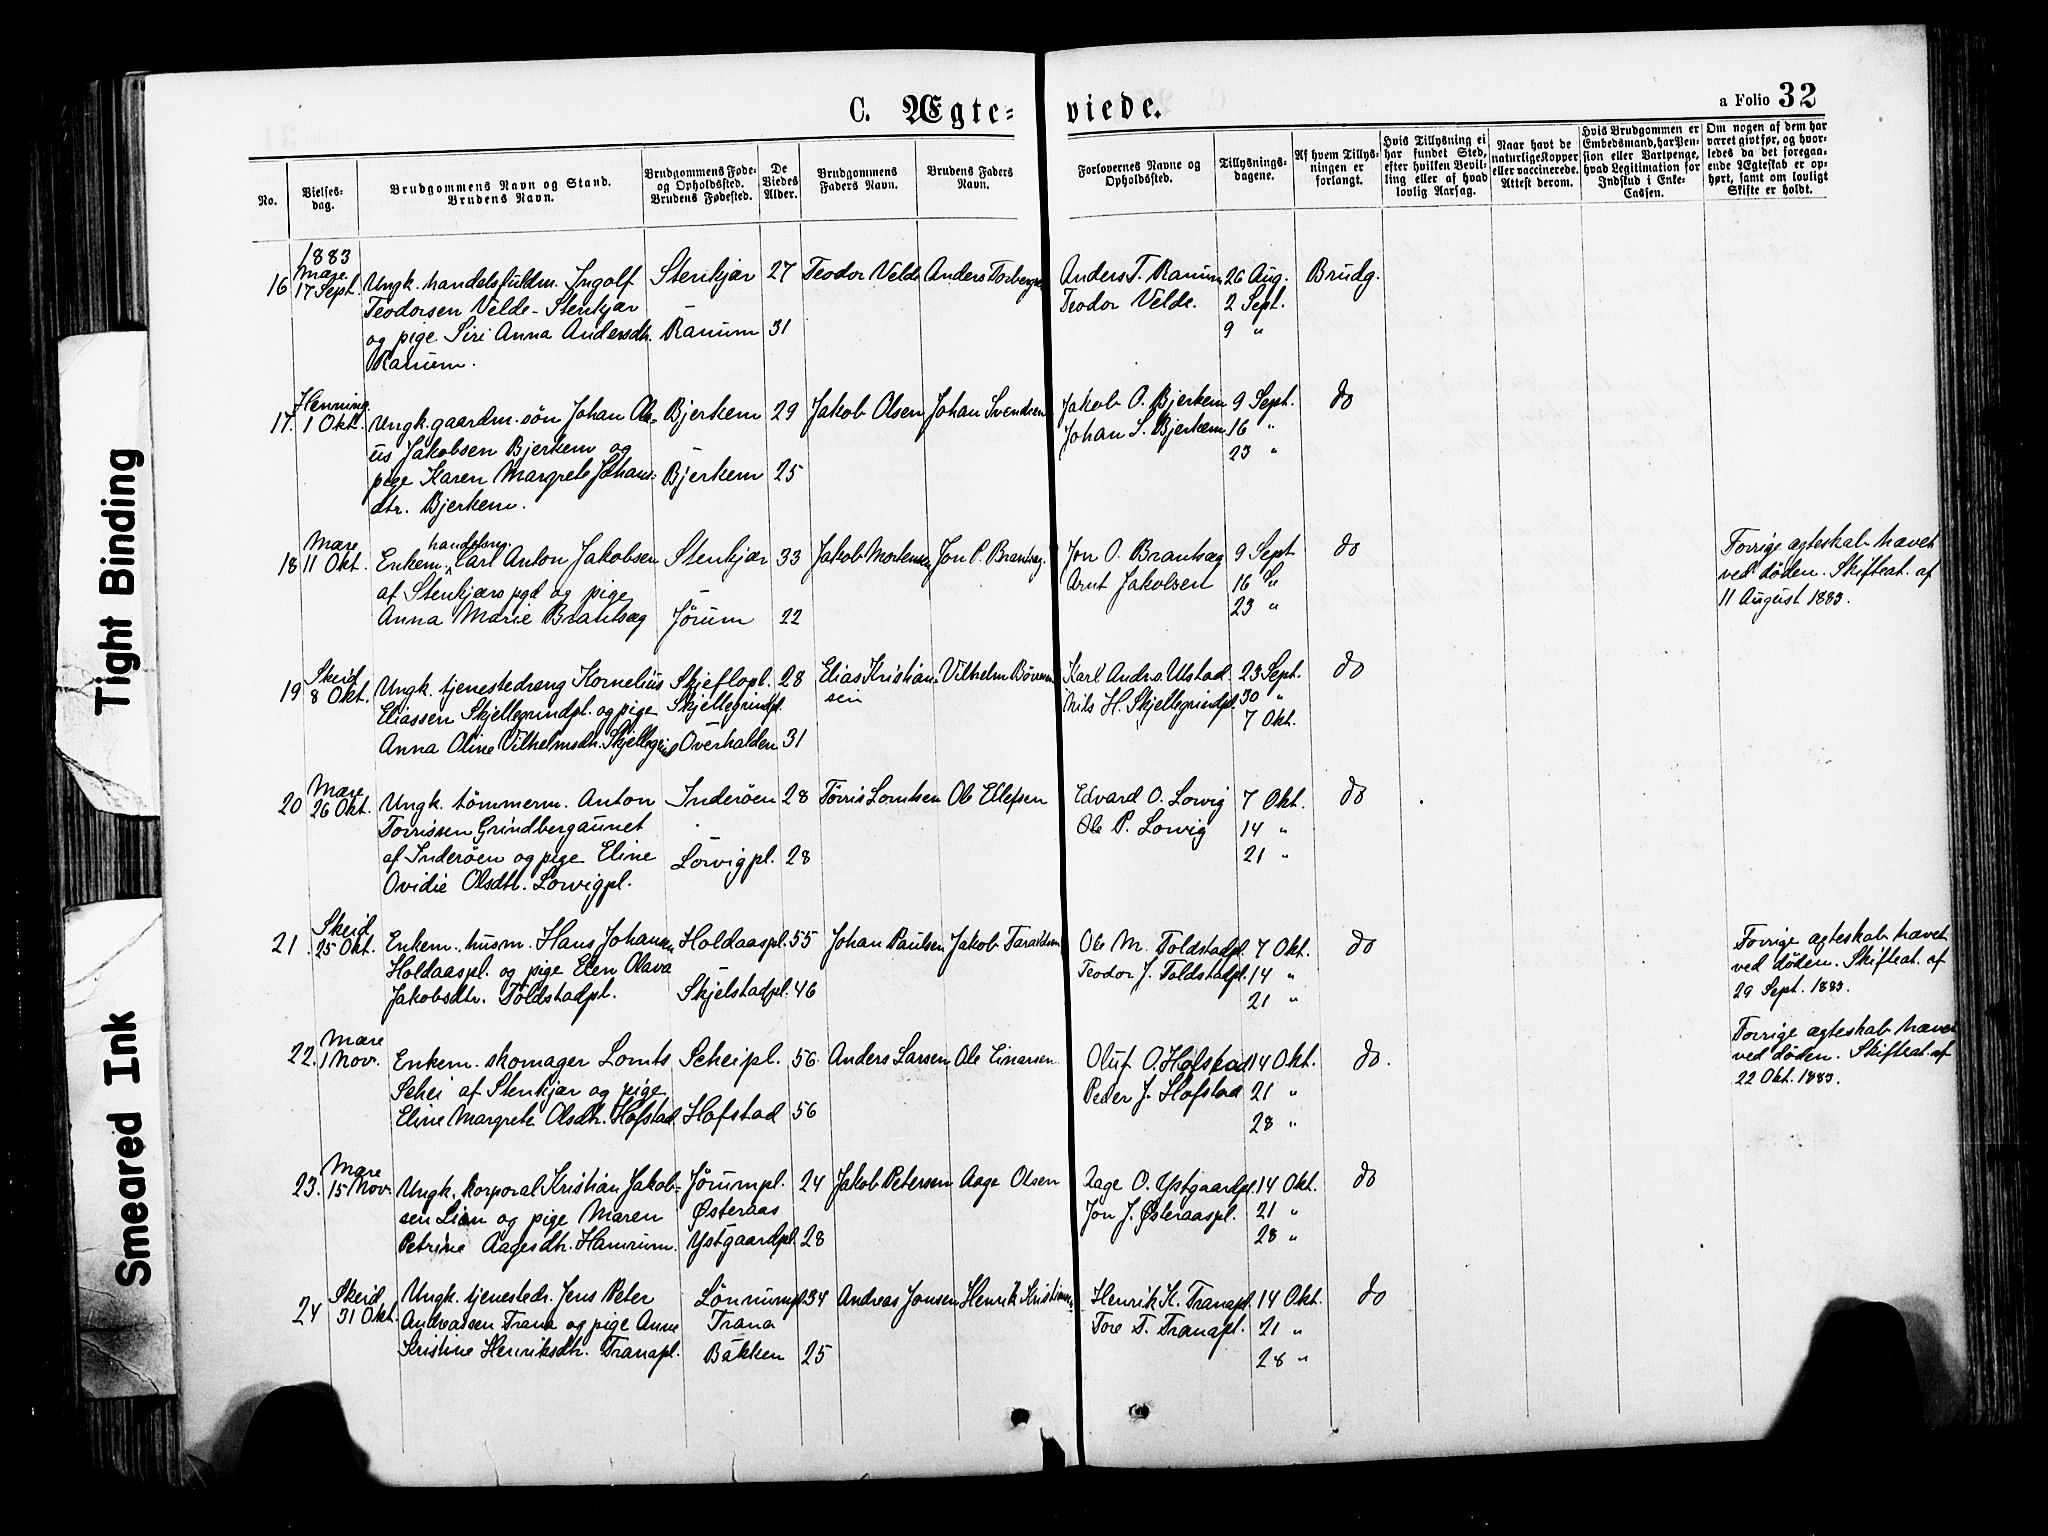 C. Ægte-viede.
a Folio 32
No.
Vielses-dag.
Brudgommens Navn og Stand.
Brudens Navn.
Brudgommens Føde- og Opholdssted.
Brudens Fødested.
De Viedes Alder.
Brudgommens Faders Navn.
Brudens Faders Navn.
Forlovernes Navne og Opholdssted.
Tillysnings-dagene.
Af hvem Tillys-ningen er forlangt.
Hvis Tillysning ei har fundet Sted, efter hvilken Bevil-ling eller af hvad lovlig Aarsag.
Naar havt de naturlige Kopper eller vaccinerede. Attest derom.
Hvis Brudgommen er Embedsmand, har Pen-sion eller Vartpenge, hvad Legitimation for Indskud i Enke-Cassen.
Om nogen af dem har været gift før, og hvor-ledes da det foregaa-ende Ægteskab er op-hørt, samt om lovligt Skifte er holdt.
1883
Mære
16 17 Sept. Ungk. handelsfuldm. Ingolf Stenkjær 27 Teodor Velde Anders Torbergsen Anders T. Ranum 26 Aug. Brudg.
Teodorsen Velde - Stenkjær Teodor Velde. 2 Sept.
og pige Siri Anna Andersdtr. Ranum 31 9 "
Ranum.
Henning
17. 1 Okt. Ungk. gaardm. søn Johan Ole- Bjerkem 29 Jakob Olsen Johan Svendsen Jakob O. Bjerkem 9 Sept. do
us Jakobsen Bjerkem og Johan S. Bjerkem 16 "
pige Karen Margrete Johans- Bjerkem 25 23 "
dtr. Bjerkem.
Mære
handelsm.
18 11 Okt. Enkem. Carl Anton Jakobsen Stenkjær 33 Jakob Mortensen Jon P. Brantsæg Jon O. Brantsæg 9 Sept do
af Stenkjær og pige Arnt Jakobsen 16 S"
Anna Marie Brantsæg Jørum 22 23 "
Forrige ægteskab hævet
ved døden. Skifteat. af
11 August 1883.
Skeid
19 8 Okt. Ungk. tjenestedreng Kornelius Skjeflopl. 28 Elias Kristian- Vilhelm Karl Andr. Ulstad 23 Sept. do
Eliassen Skjellegrindpl. og pige Skjellegrindpl. sen Nils H. Skjellegrindpl. 30 "
Anna Oline Vilhelmsdtr. Overhalden 31 7 Okt.
Mære
20 26 Okt. Ungk. tømmerm. Anton Inderøen 28 Torris Lorntsen Ole Ellefsen Edvard O. Lorvig 7 Okt. do
Torrissen Grindbergaunet Ole P. Lorvig 14 "
af Inderøen og pige Eline Lorvigpl. 28 21 "
Ovidie Olsdtr. Lorvigpl.
Skeid
21 25 Okt. Enkem. husm. Hans Johansen Holdaaspl. 55 Johan Paulsen Jakob Taraldsen Ole M. Foldstadpl. 7 Okt. do
Holdaaspl. og pige Elen Olava Teodor J. Foldstadpl. 14 "
Jakobsdtr. Foldstadpl. Skjelstadpl. 46 21 "
Forrige ægteskab hævet
ved døden. Skifteat. af
29 Sept. 1883.
Mære
22. 1 Nov. Enkem. skomager Lornts Scheipl. 56 Anders Larsen Ole Einarsen Oluf O. Hofstad 14 Okt. do.
Schei af Stenkjær og pige Peder J. Hofstad 21 "
Eline Margrete Olsdtr. Hofstad Hofstad 56 28 "
Forrige ægteskab hævet
ved døden. Skifteat. af
22 Okt. 1883.
Mære
23. 15 Nov. Ungk. korporal Kristian Jakob- Jørumpl. 24 Jakob Petersen Aage Olsen Aage O. Ystgaardpl. 14 Okt. do
sen Lien og pige Maren Østeraas Jon J. Østeraaspl. 21 "
Petrine Aagesdtr. Hamrum. Ystgaardpl. 28 28 "
Skeid
24 31 Okt. Ungk. tjenestedr. Jens Peter Lønnumpl. 34 Andreas Jonsen Henrik Kristiansen Henrik K. Tranapl. 14 Okt. do
Andreassen Trana og pige Anne Trana Tore T. Tranapl. 21 "
Kristine Henriksdtr. Tranapl. Bakken 25 28 "
Tight Binding
Smeared Ink